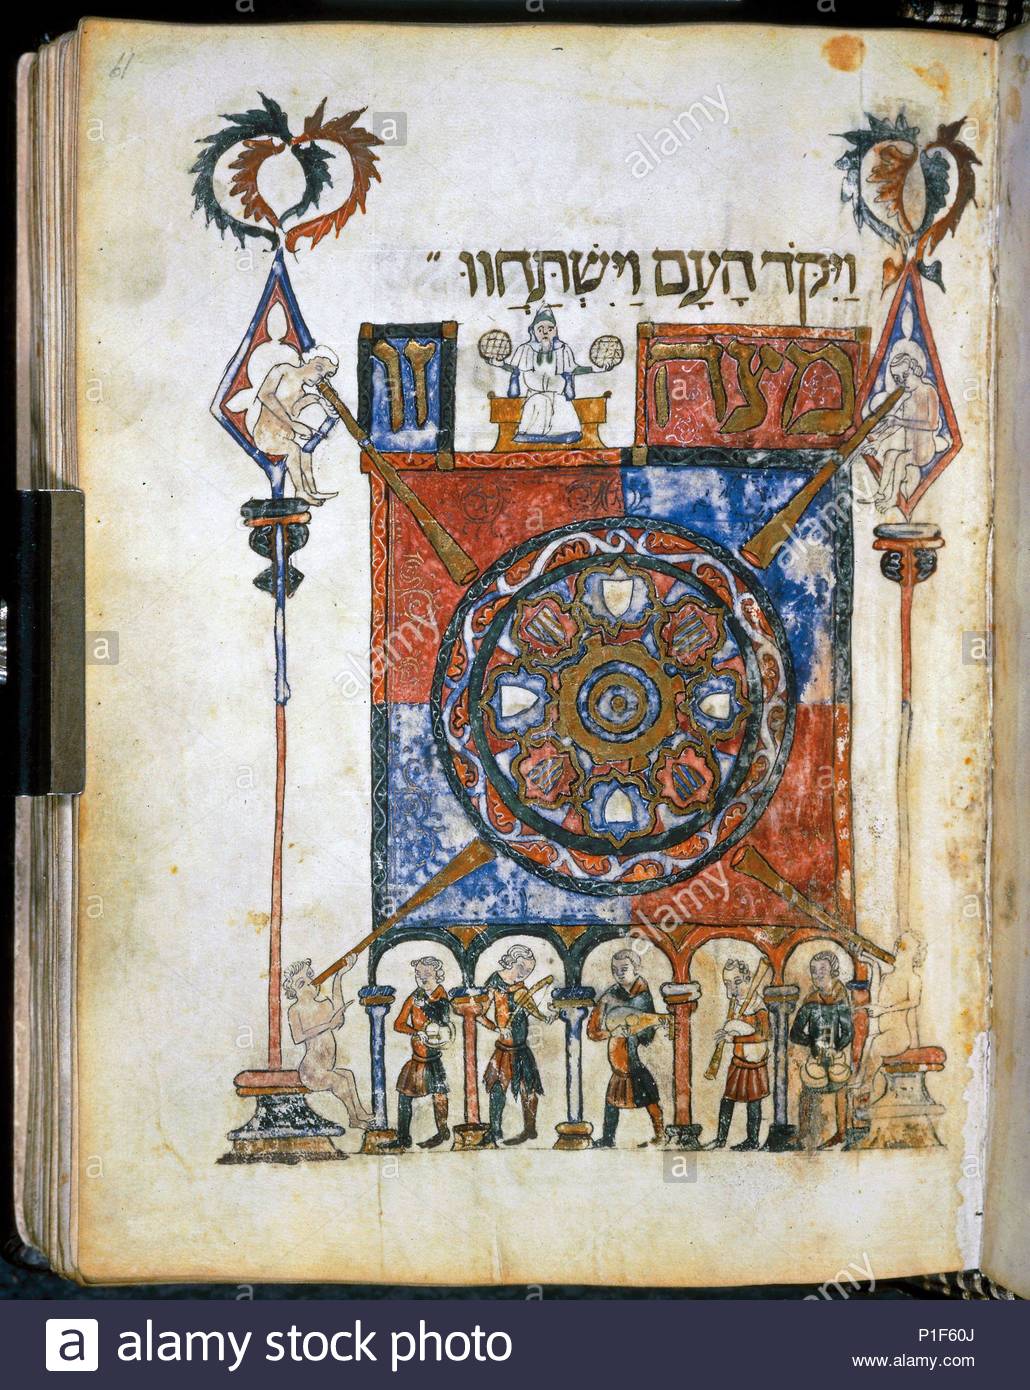 61
וַיִּקֹּד הָעָם וַיִּשְׁתַּחֲווּ״
מצה זו
a alamy stock photo
P1F60J
www.alamy.com